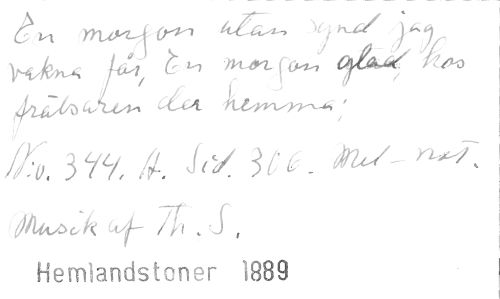 En morgon utan synd jag
vakna får, En morgon glad, hos
frälsaren der hemma;
No. 344. A. Sid. 306. Mel-not.
Musik af Th. S.
Hemlandstoner 1889